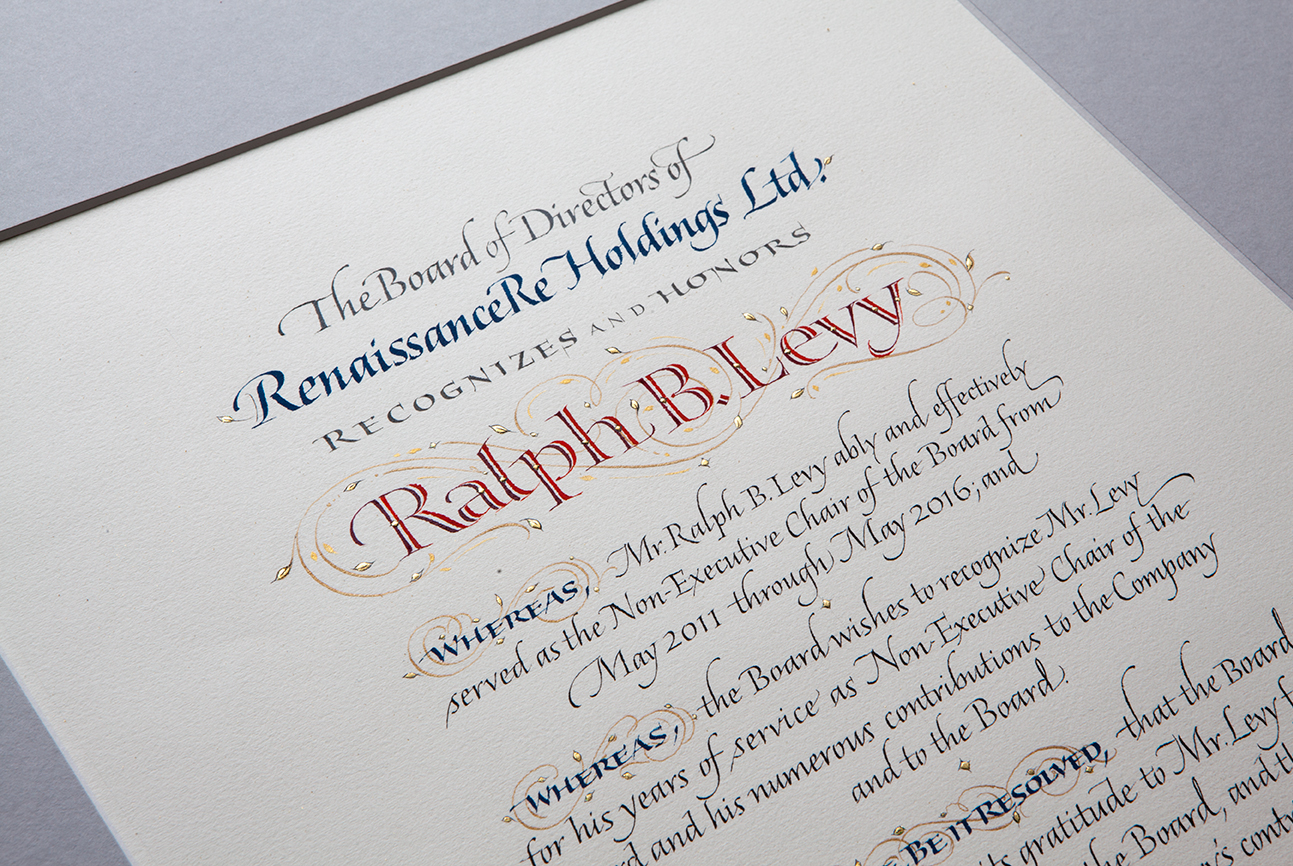 The Board of Directors of
RenaissanceRe Holdings Ltd.
RECOGNIZES AND HONORS
Ralph B. Levy
WHEREAS, Mr. Ralph B. Levy ably and effectively
served as the Non-Executive Chair of the Board from
May 2011 through May 2016; and
WHEREAS, the Board wishes to recognize Mr. Levy
for his years of service as Non-Executive Chair of the
and his numerous contributions to the Company
and to the Board.
BE IT RESOLVED, that the Board
its gratitude to Mr. Levy
the Board, and